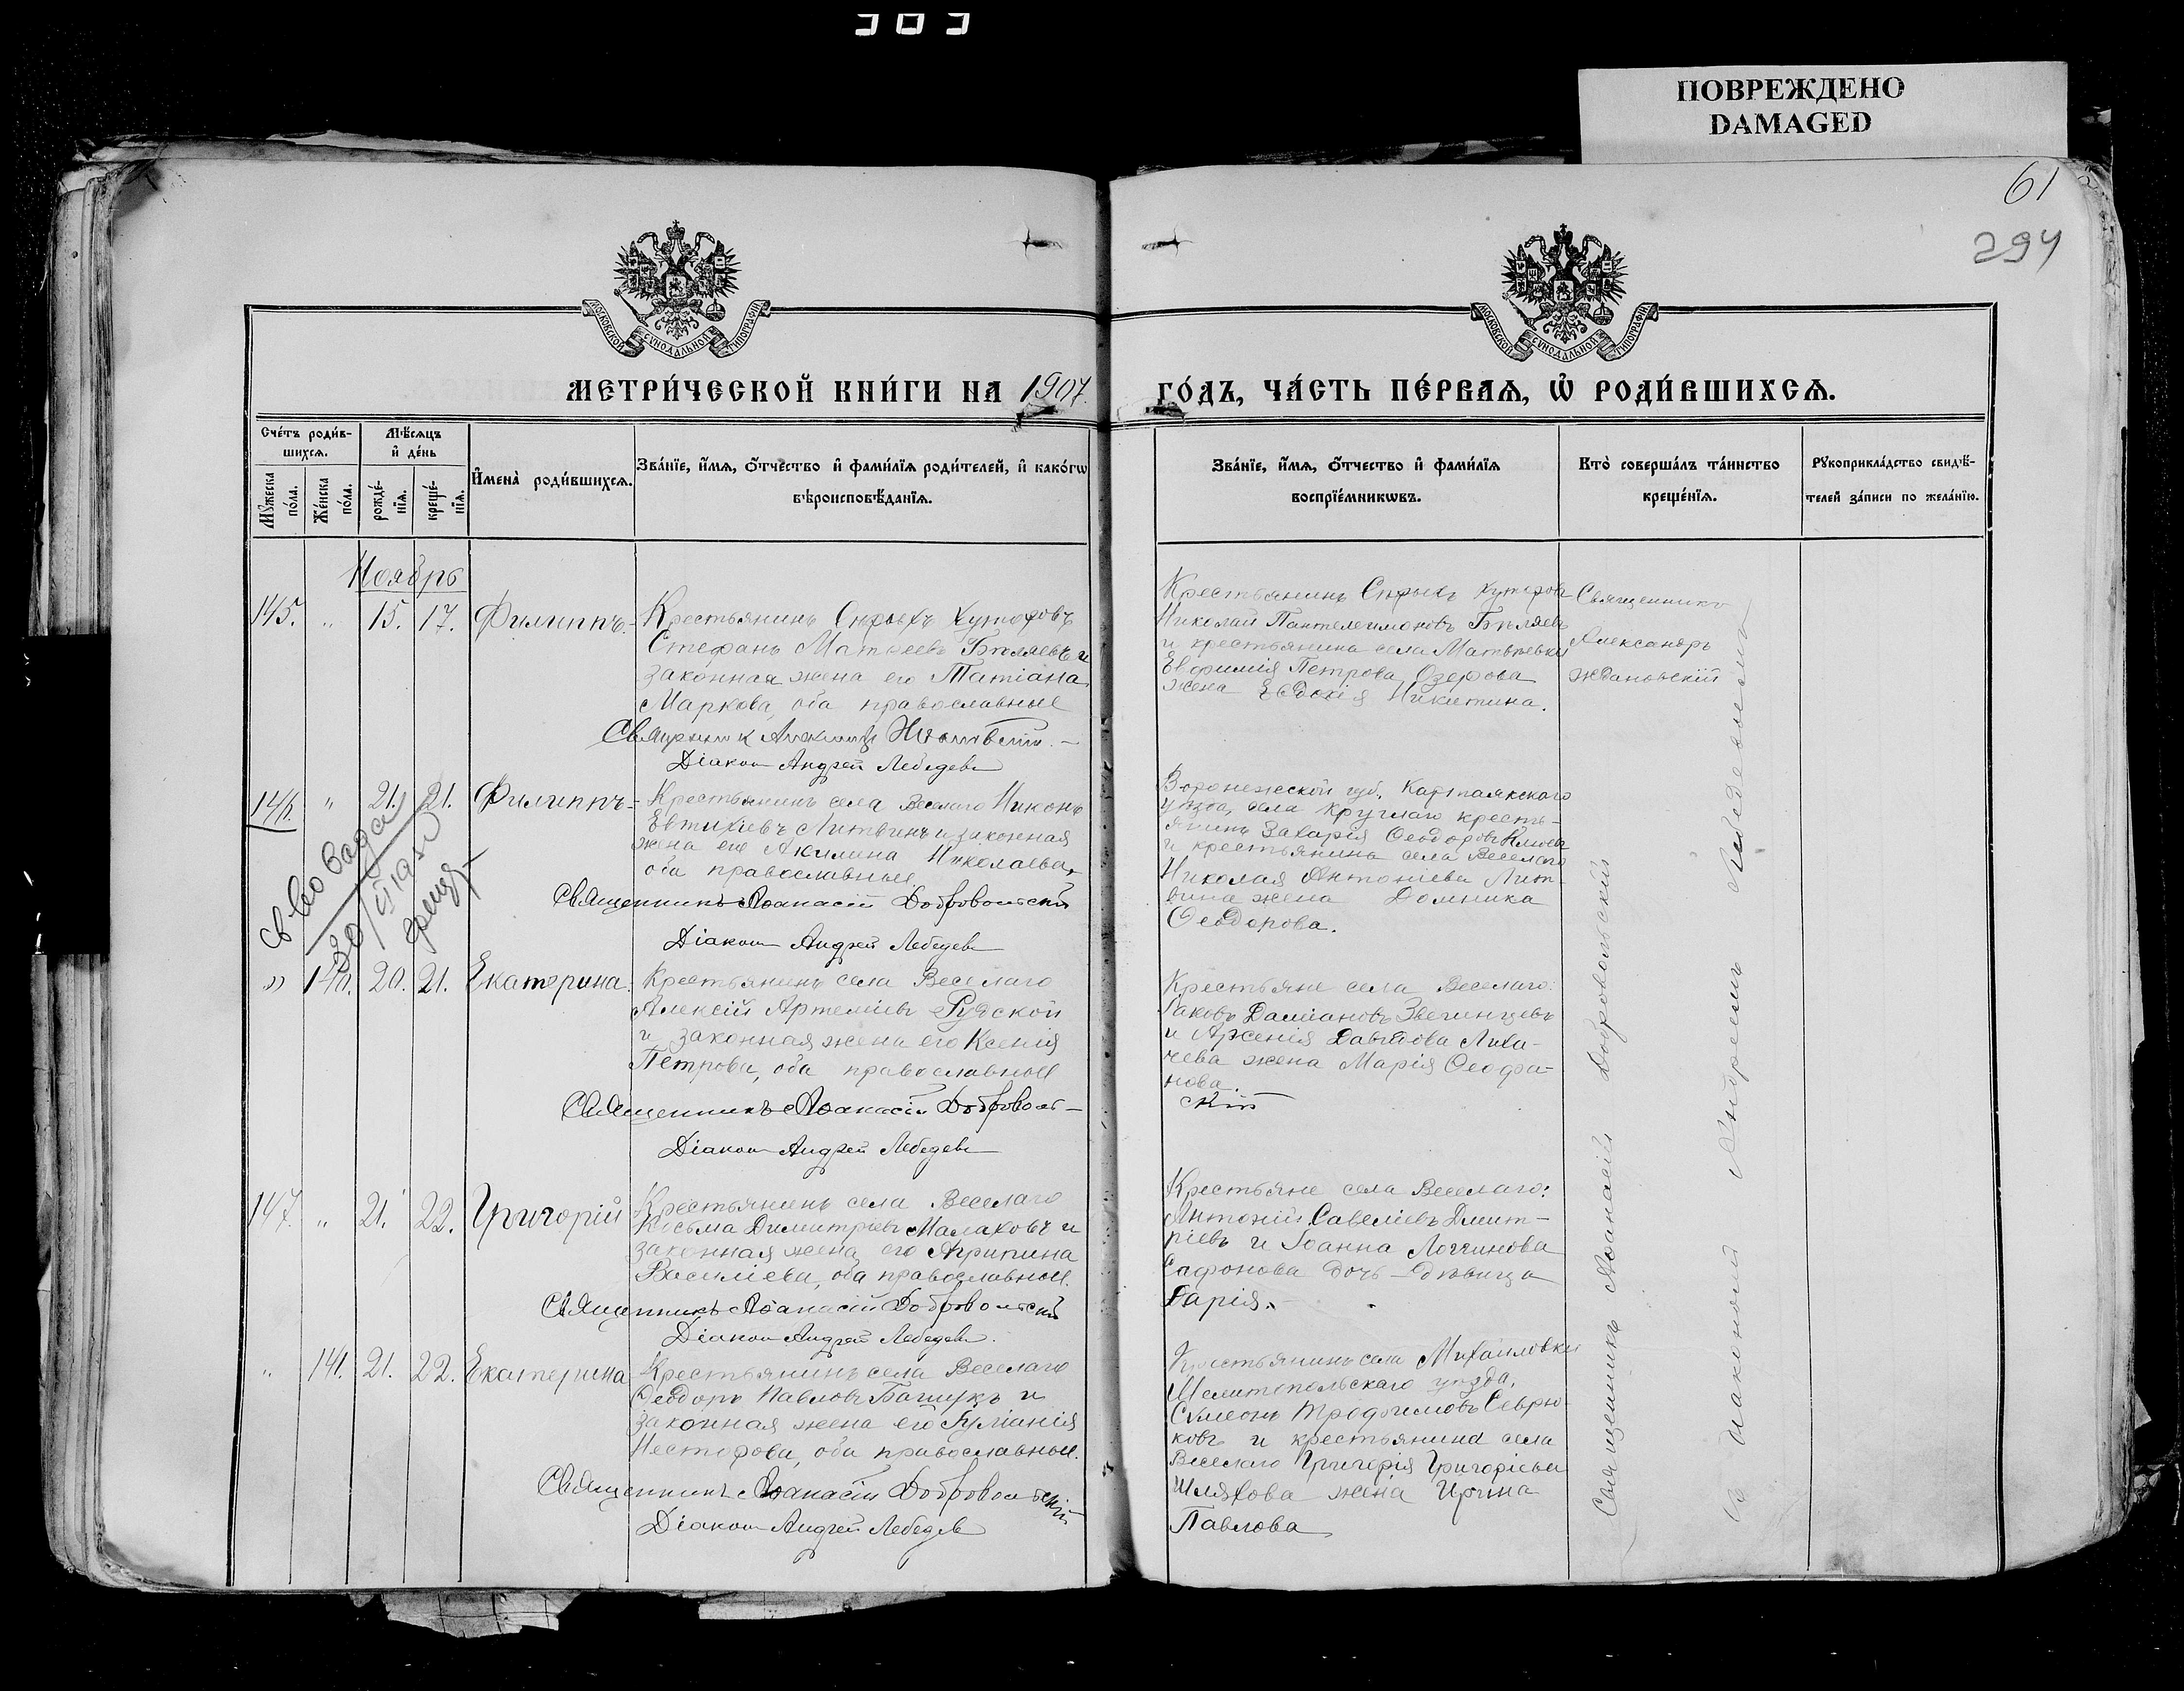 303
ПОВРЕЖДЕНО
DAMAGED
61
294
МОСКОВСКОЙ СѴНОДАЛЬНОЙ ТИПОГРАФІИ
МОСКОВСКОЙ СѴНОДАЛЬНОЙ ТИПОГРАФІИ
МЕТРИ́ЧЕСКОЙ КНИ́ГИ НА 1907
ГО́ДЪ, ЧА́СТЬ ПЕ́РВАѦ, Ѡ҆ РОДИ́ВШИХСѦ.
Сче́тъ роди́в-
шихсѧ.
Мѣ́сѧцъ
и҆ де́нь
Мꙋ́жеска
по́ла.
Же́нска
по́ла.
рожде́-
нїѧ.
креще́-
нїѧ.
И҆мена̀ роди́вшихсѧ.
Зва́нїе, и҆́мѧ, ѻ҆́тчество и҆ фами́лїѧ роди́телей, и҆ како́гѡ
вѣроисповѣ́данїѧ.
Зва́нїе, и҆́мѧ, ѻ҆́тчество и҆ фами́лїѧ
воспрїе́мникѡвъ.
Кто̀ соверша́лъ та́инство
креще́нїѧ.
Рꙋкоприкла́дство свидѣ́-
телей за́писи по жела́нїю.
Ноябрь
145. " 15. 17. Филиппъ.
Крестьянинъ Хуторовъ
Стефанъ Матѳеевъ Бѣляевъ и
законная жена его Татіана
Маркова, оба православные
Діаконъ Андрей Лебедевъ
Крестьянинъ Хуторовъ
Николай Пантелеимоновъ Бѣляевъ
и крестьянина села Матвѣевки
Евфимія Петрова Озерова
жена Евдокія Никитина.
Священникъ
Александръ
Ждановскій
146. " 21. 21. Филиппъ-
Крестьянинъ села Веселаго Никонъ
Евтихіевъ Литвинъ и законная
жена его Акилина Николаева,
оба православные
Священникъ Аѳанасій Добровольскій
Діаконъ Андрей Лебедевъ
Воронежской губ. Коротоякского
уѣзда, села Круглаго кресть-
янинъ Захарія Ѳеодоровъ
и крестьянина села Веселаго
Николая Антоніева Лит-
вина жена Домника
Ѳеодорова.
" 140. 20. 21. Екатерина.
Крестьянинъ села Веселаго
Алексій Артеміевъ Рудской
и законная жена его Ксенія
Петрова, оба православные
Священникъ Аѳанасій Доброволь-
скій
Діаконъ Андрей Лебедевъ
Крестьяне села Веселаго:
Іаковъ Даміановъ Звегинцевъ
и Арсенія Давидова Лиха-
чева жена Марія Ѳеофа-
нова.
147. " 21. 22. Григорій
Крестьянинъ села Веселаго
Косьма Димитріевъ Малаховъ и
законная жена его Агрипина
Василіева, оба православные.
Священникъ Аѳанасій Добровольскій
Діаконъ Андрей Лебедевъ.
Крестьяне села Веселаго:
Антоній Савеліевъ Дмит-
ріевъ и Іоанна Логгинова
Сафонова дочь-дѣвица
Дарія.
" 141. 21. 22. Екатерина
Крестьянинъ села Веселаго
Ѳеодоръ Павловъ и
законная жена его Іуліанія
Несторова, оба православные.
Священникъ Аѳанасій Добровольскій
Діаконъ Андрей Лебедевъ
Крестьянинъ села Михайловки
Мелитопольскаго уѣзда,
Сѵмеонъ Трофимовъ Севрю-
ковъ и крестьянина села
Веселаго Григорія Григоріева
Шляхова жена Ирина
Павлова
Священникъ Аѳанасій Добровольскій
съ діакономъ Андреемъ Лебедевымъ